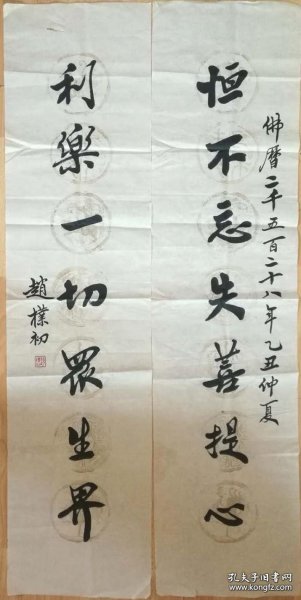 佛曆二千五百二十八年乙丑仲夏
恒不忘失菩提心
利樂一切眾生界
趙樸初
孔夫子旧书网
www.kongfz.com